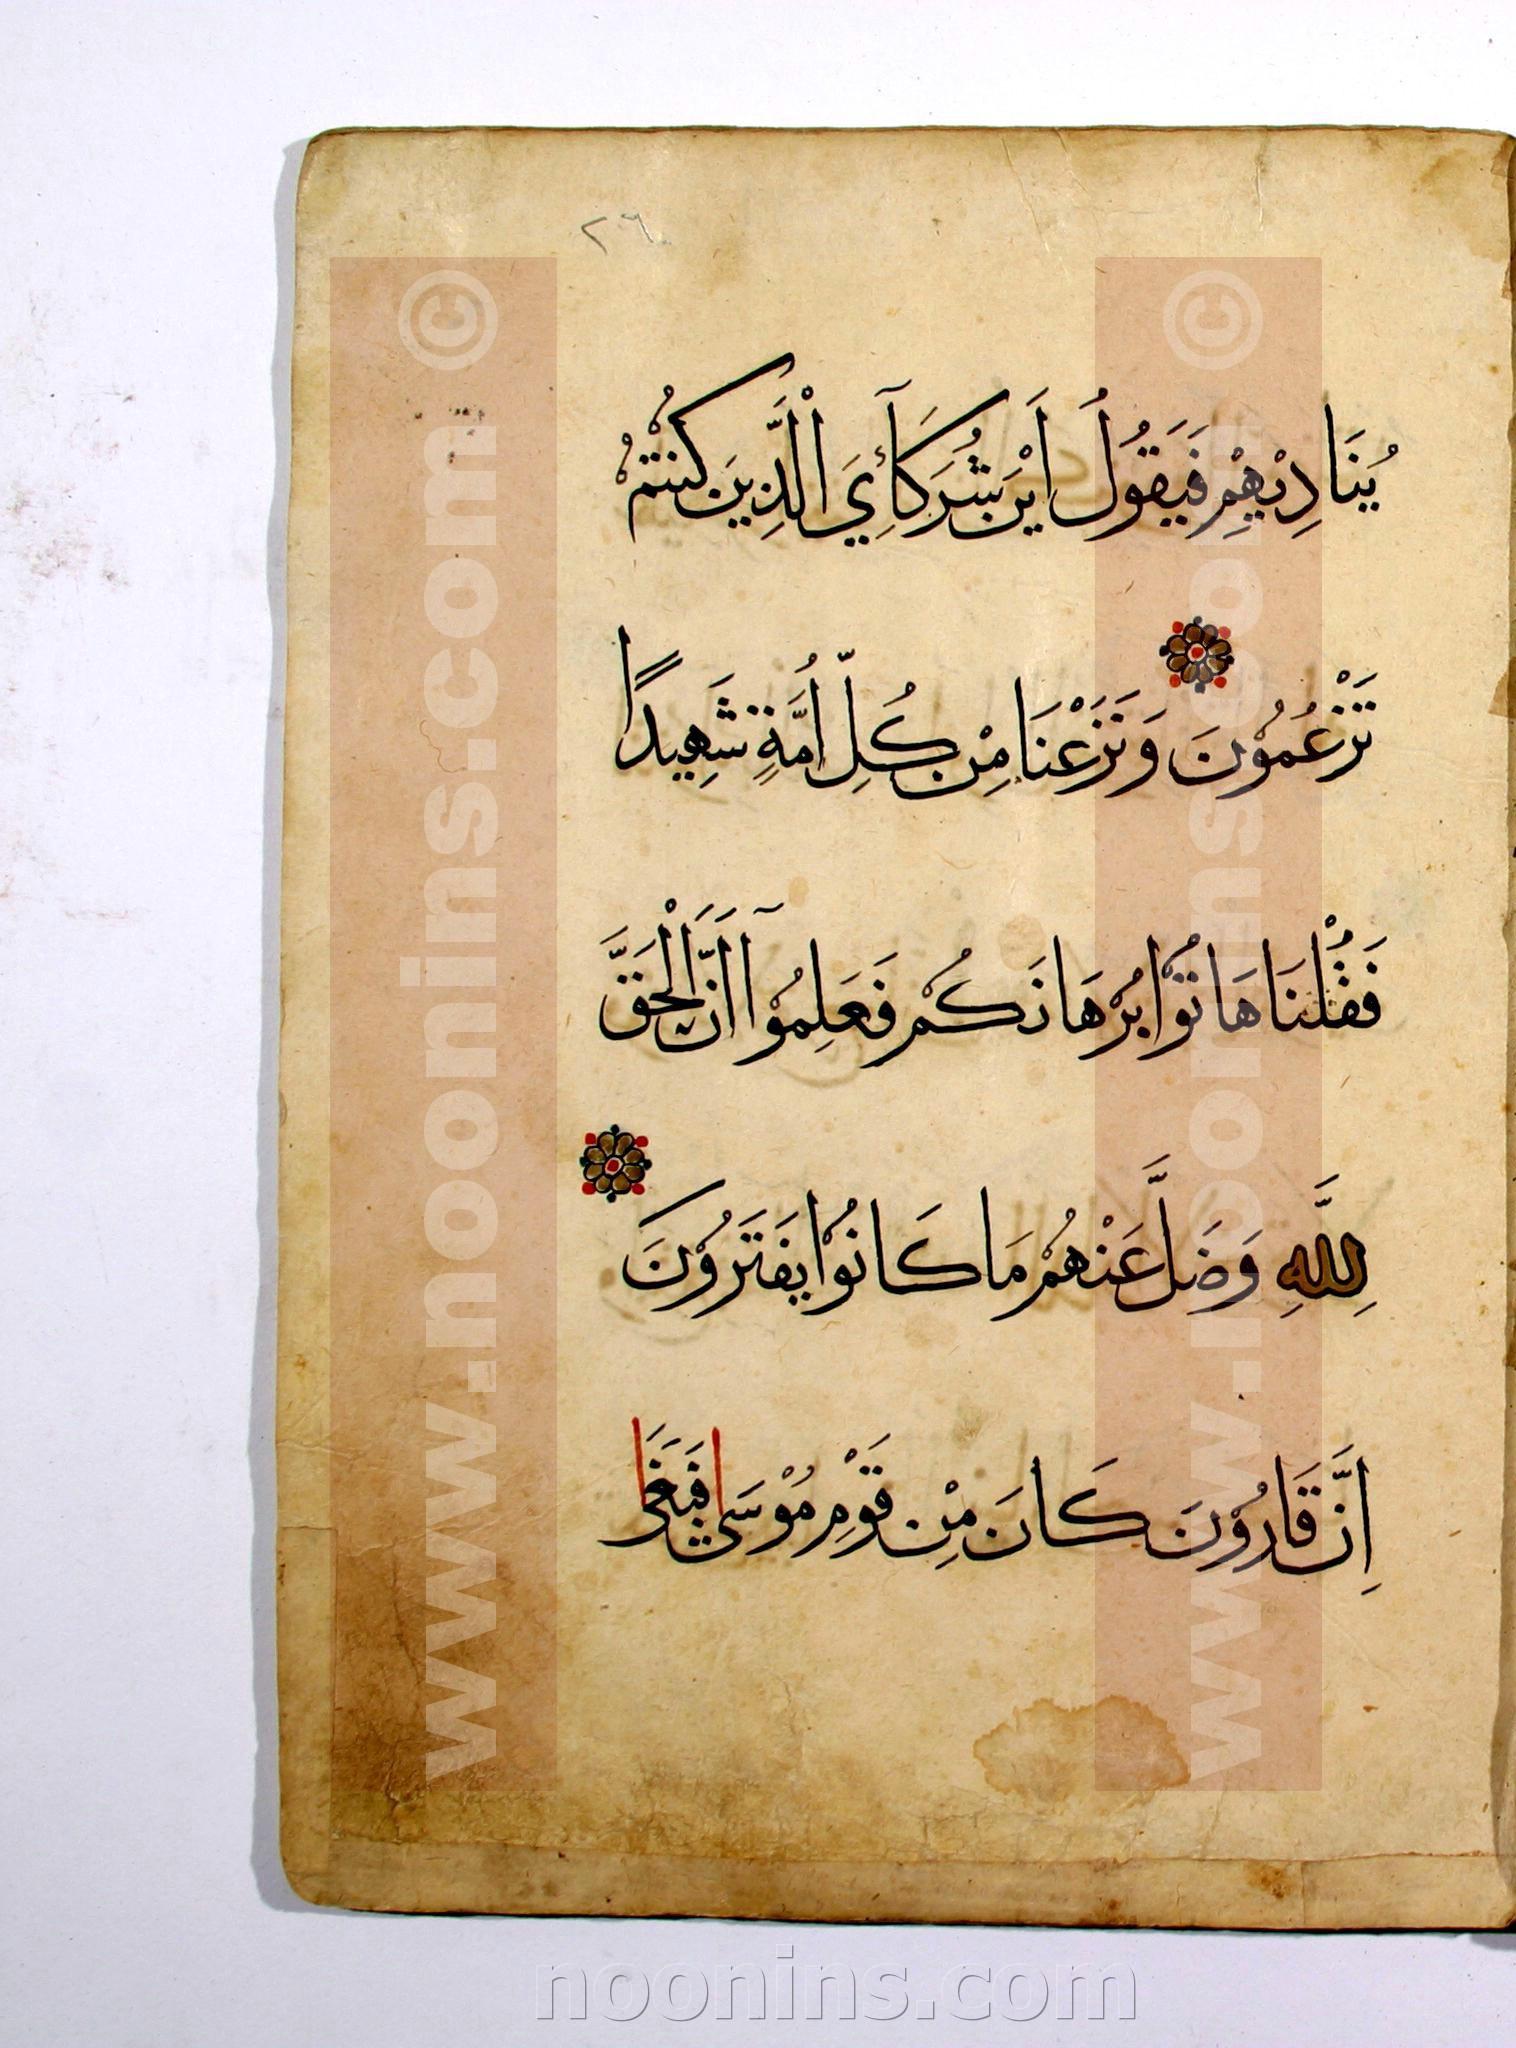 ٢٦
يُنَادِيْهِمْ فَيَقُولُ اَيْنَ شُرَكَآءِيَ الَّذِينَ كُنْتُمْ
تَزْعُمُوْنَ وَنَزَعْنَا مِنْ كُلِّ اُمَّةٍ شَهِيدًا
فَقُلْنَا هَاتُوْا بُرْهَانَكُمْ فَعَلِمُوْآ اَنَّ الْحَقَّ
لِلَّهِ وَضَلَّ عَنْهُمْ مَا كَانُوْا يَفْتَرُوْنَ
اِنَّ قَارُوْنَ كَانَ مِنْ قَوْمِ مُوْسَى فَبَغَى
www.noonins.com ©
www.noonins.com ©
noonins.com